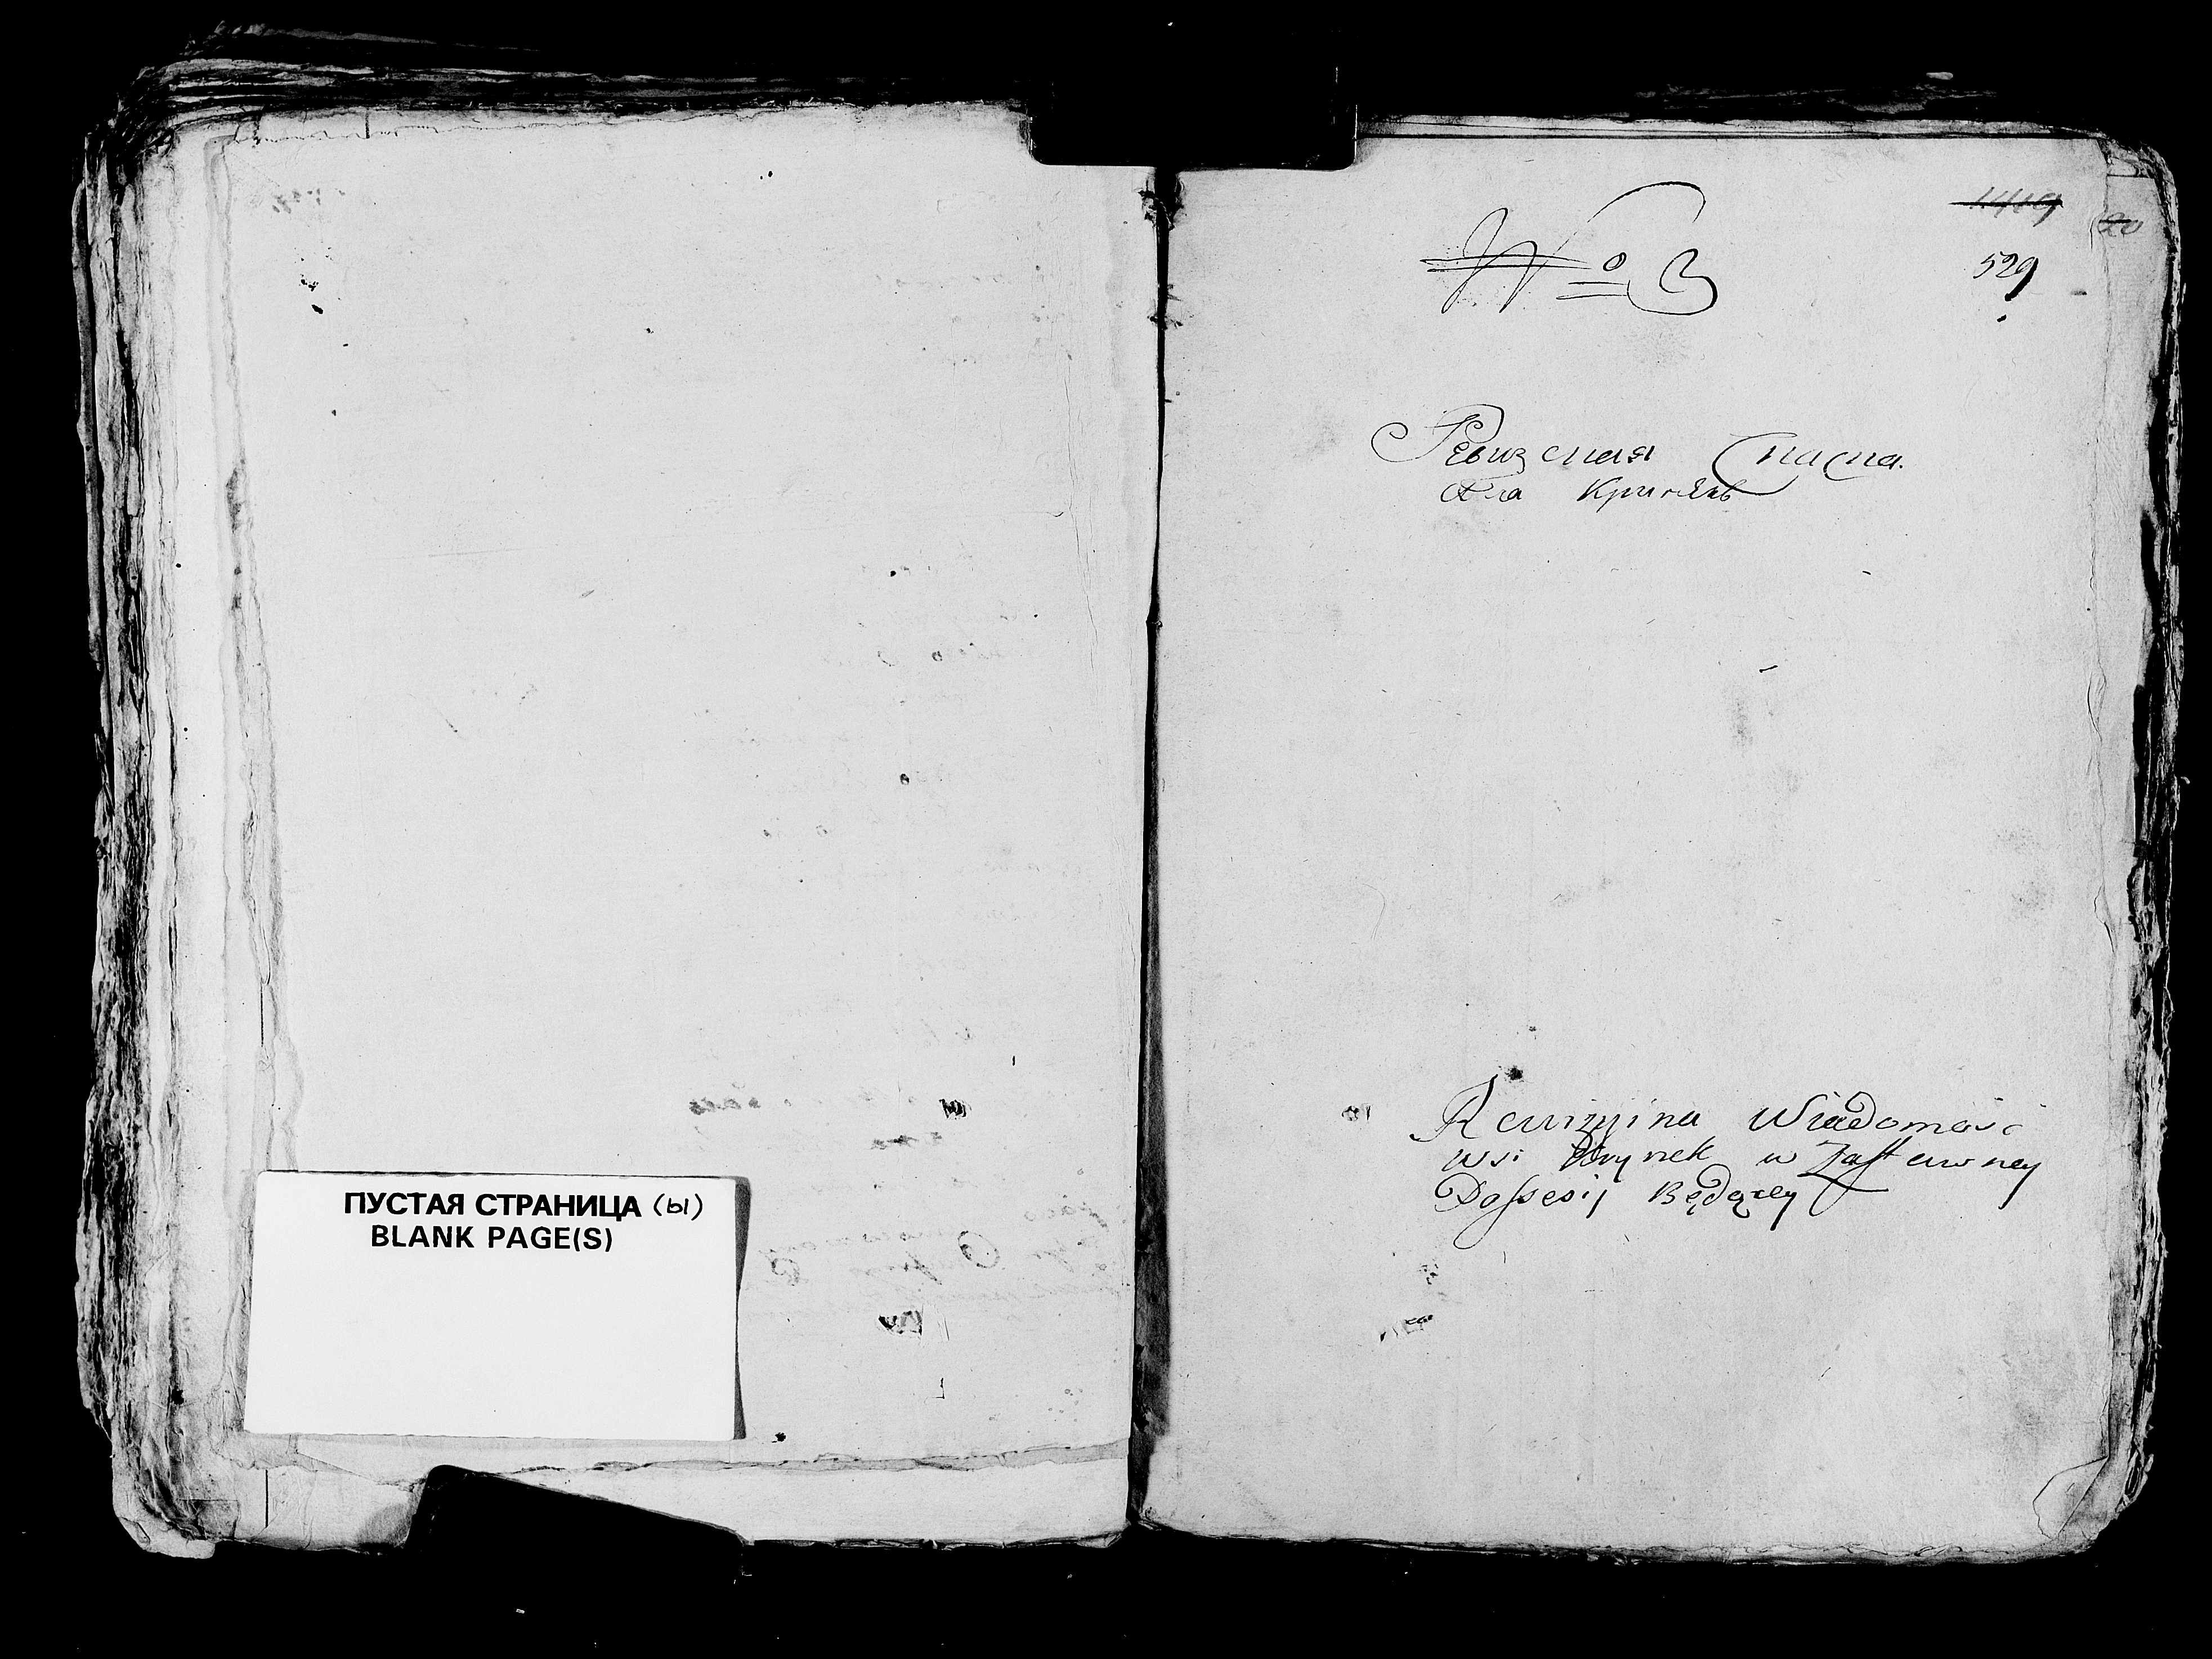 ПУСТАЯ СТРАНИЦА (ы)
BLANK PAGE(S)
№ 3
529
Ревизская Скаска.
Села
Rewizyina Wiadomość
wsi w Zastawney
Possesij Będącey